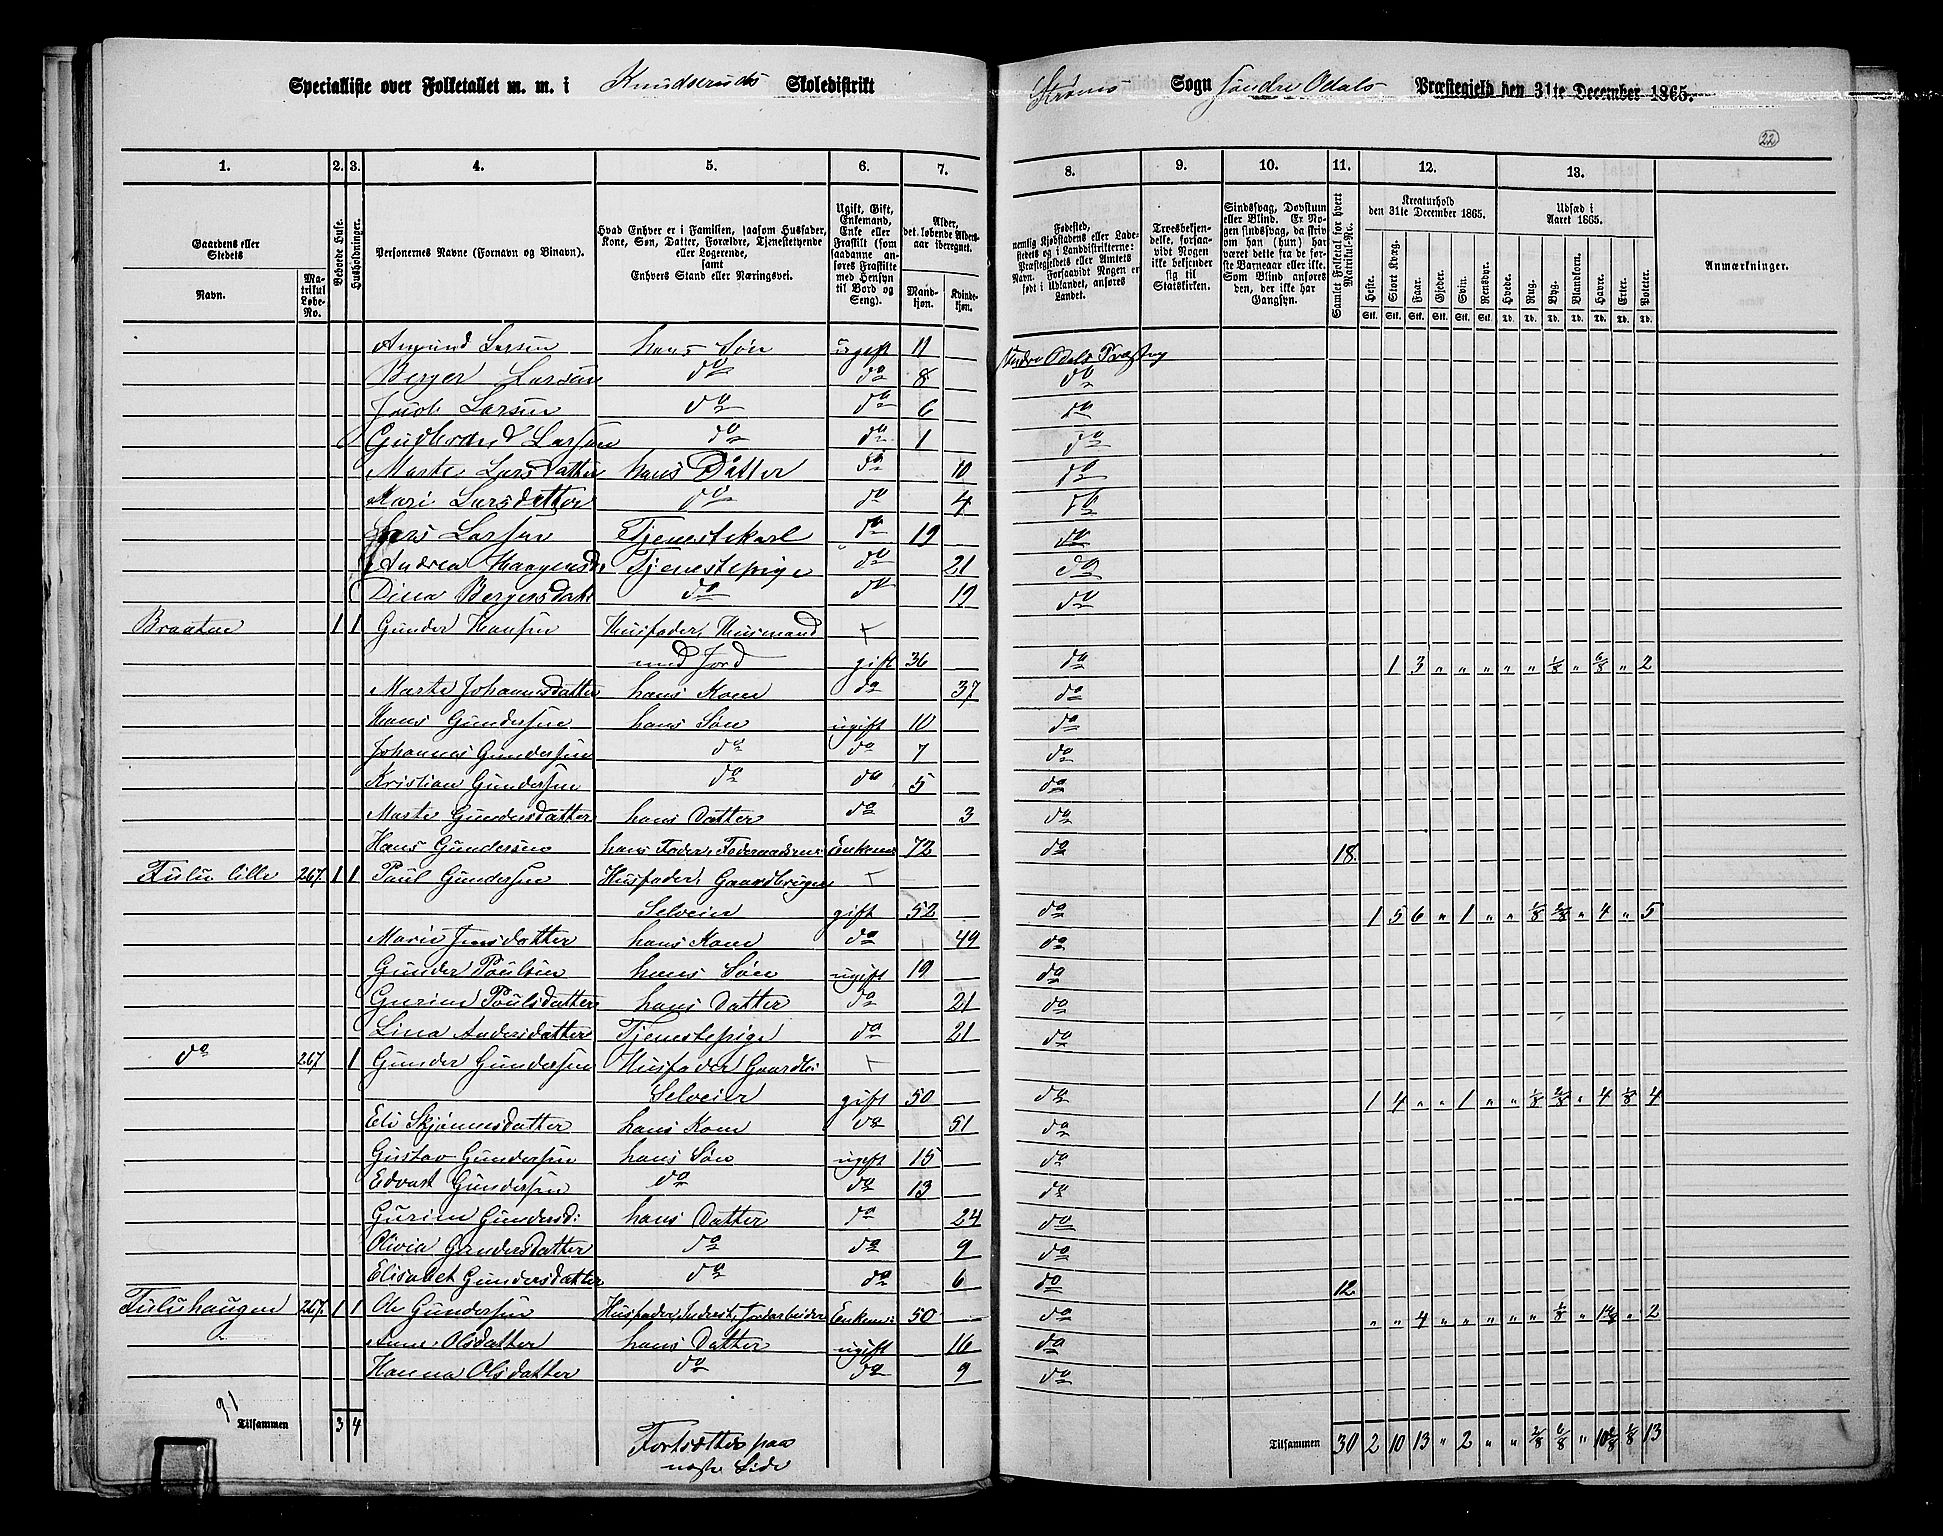 Specialliste over Folketallet m. m. i Knudseruds Skoledistrikt Strøms Sogn Søndre Odals Præstegjeld den 31te December 1865.
22
1. 2. 3. 4. 5. 6. 7. 8. 9. 10. 11. 12. 13.
Gaardens eller Stedets
Navn. Matrikul Løbe-No.
Beboede Huse.
Husholdninger.
Personernes Navne (Fornavn og Binavn).
Hvad Enhver er i Familien, saasom Husfader, Kone, Søn, Datter, Forældre, Tjenestetyende eller Logerende, samt Enhvers Stand eller Næringsvei.
Ugift, Gift, Enkemand, Enke eller Fraskilt (som saadanne anføres Fraskilte med Hensyn til Bord og Seng).
Alder, det løbende Alders-aar iberegnet.
Mandkjøn. Kvindekjøn.
Fødested, nemlig Kjøbstadens eller Ladestedets og i Landdistrikterne: Præstegjeldets eller Amtets Navn. Forsaavidt Nogen er født i Udlandet, anføres Landet.
Troesbekjendelse, forsaavidt Nogen ikke bekjender sig til Statskirken.
Sindssvag, Døvstum eller Blind. Er Nogen sindssvag, da skriv om han (hun) har været dette fra de første Barneaar eller ikke. Som Blind anføres den, der ikke har Gangsyn.
Samlet Folketal for hvert Matrikul-No.
Kreaturhold den 31te December 1865.
Heste. Stort Kvæg. Faar. Gjeder. Svin. Rensdyr.
Udsæd i Aaret 1865.
Hvede. Rug. Byg. Blandkorn. Havre. Erter. Poteter.
Stk. Stk. Stk. Stk. Stk. Stk. Td. Td. Td. Td. Td. Td. Td.
Anmærkninger.
Amund Larsen hans Søn ugift 11 Søndre Odals Præstegj
Berger Larsen do do 8 do
Jacob Larsen do do 6 do
Gudbrand Larsen do do 1 do
Marte Larsdatter hans Datter do 10 do
Kari Larsdatter do do 4 do
Lars Larsen Tjenestekarl do 19 do
Andrea Haagensdr Tjenestepige do 21 do
Dina Bergersdatr do do 19 do
Braaten 1 1 Gunder Hansen Husfader, Husmand +
med Jord gift 36 do 1 3 " " " " " 1/8 " 6/8 " 2
Marte Johannesdatter hans Kone do 37 do
Hans Gundersen hans Søn ugift 10 do
Johannes Gundersen do do 7 do
Kristian Gundersen do do 5 do
Marte Gundersdatter hans Datter do 3 do
Hans Gundersen hans Fader, Føderaadsm: Enkem: 72 do 18
Fulu lille 267 1 1 Paul Gundersen Husfader, Gaardbruger +
Selveier gift 52 do 1 5 6 " 1 " " 1/8 2/8 " 4 " 5
Marie Jensdatter hans Kone do 49 do
Gunder Poulsen hans Søn ugift 19 do
Gurine Poulsdatter hans Datter do 21 do
Lina Andersdatter Tjenestepige do 21 do
do 267 1 Gunder Gundersen Husfader Gaardbr: +
Selveier gift 50 do 1 4 " " 1 " " 1/8 2/8 " 4 1/8 4
Eli Skjønnesdatter hans Kone do 51 do
Gustav Gundersen hans Søn ugift 15 do
Edvart Gundersen do do 13 do
Gurine Gundersd: hans Datter do 24 do
Olivia Gundersdatter do do 9 do
Elisabet Gundersdatter do do 6 do 12
Fuluhaugen 267 1 1 Ole Gundersen Husfader, Inderst, Jordarbeider Enkem: 50 do " " 4 " " " " " 1/8 " " 2
Anne Olsdatter hans Datter ugift 16 do
Hanna Olsdatter do do 9 do
91
Tilsammen 3 4
Fortsættes paa
næste Side
Tilsammen 30 2 10 13 " 2 " " 2/8 6/8 " 1/8 13